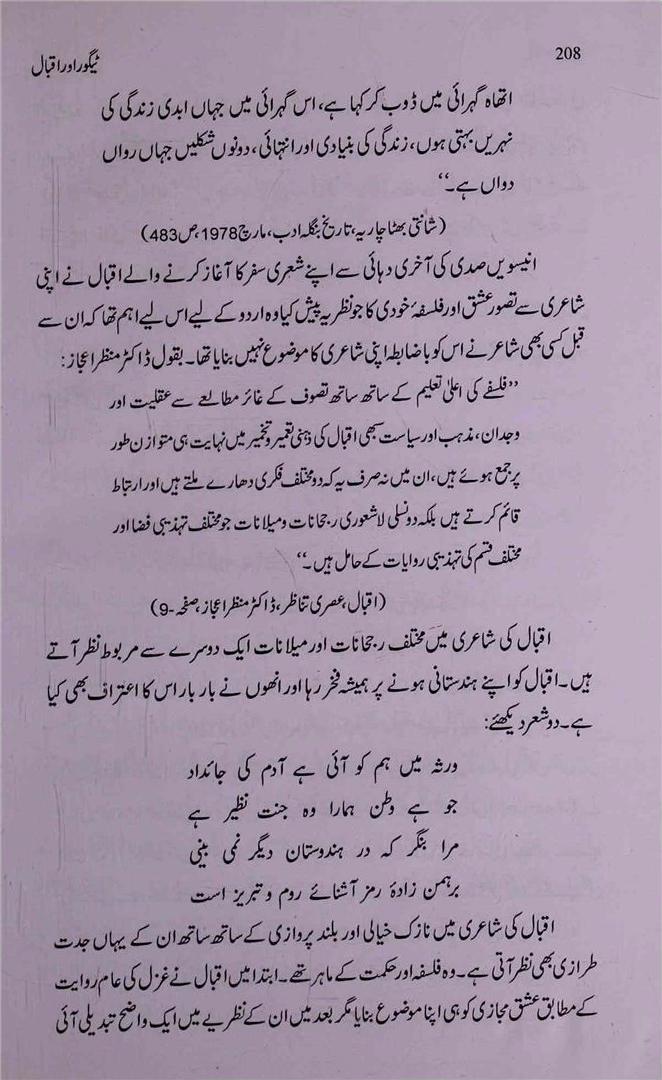 208
ٹیگور اور اقبال
اتھاہ گہرائی میں ڈوب کر کہا ہے، اس گہرائی میں جہاں ابدی زندگی کی
نہریں بہتی ہوں، زندگی کی بنیادی اور انتہائی، دونوں شکلیں جہاں رواں
دواں ہے۔‘‘
(شانتی بھٹا چاریہ، تاریخ بنگلہ ادب، مارچ 1978، ص 483)
انیسویں صدی کی آخری دہائی سے اپنے شعری سفر کا آغاز کرنے والے اقبال نے اپنی
شاعری سے تصور عشق اور فلسفۂ خودی کا جو نظریہ پیش کیا وہ اردو کے لیے اس لیے اہم تھا کہ ان سے
قبل کسی بھی شاعر نے اس کو باضابطہ اپنی شاعری کا موضوع نہیں بنایا تھا۔ بقول ڈاکٹر منظر اعجاز:
’’فلسفے کی اعلیٰ تعلیم کے ساتھ ساتھ تصوف کے غائر مطالعے سے عقلیت اور
وجدان، مذہب اور سیاست سبھی اقبال کی ذہنی تعمیر و تخمیر میں نہایت ہی متوازن طور
پر جمع ہوئے ہیں، ان میں نہ صرف یہ کہ دو مختلف فکری دھارے ملتے ہیں اور ارتباط
قائم کرتے ہیں بلکہ دو نسلی لاشعوری رجحانات و میلانات جو مختلف تہذیبی فضا اور
مختلف قسم کی تہذیبی روایات کے حامل ہیں۔‘‘
(اقبال، عصری تناظر، ڈاکٹر منظر اعجاز، صفحہ-9)
اقبال کی شاعری میں مختلف رجحانات اور میلانات ایک دوسرے سے مربوط نظر آتے
ہیں۔ اقبال کو اپنے ہندستانی ہونے پر ہمیشہ فخر رہا اور انھوں نے بار بار اس کا اعتراف بھی کیا
ہے۔ دو شعر دیکھئے:
ورثہ میں ہم کو آئی ہے آدم کی جائداد
جو ہے وطن ہمارا وہ جنت نظیر ہے
مرا بنگر کہ در ہندوستان دیگر نمی بینی
برہمن زادۂ رمز آشنائے روم و تبریز است
اقبال کی شاعری میں نازک خیالی اور بلند پروازی کے ساتھ ساتھ ان کے یہاں جدت
طرازی بھی نظر آتی ہے۔ وہ فلسفہ اور حکمت کے ماہر تھے۔ ابتدا میں اقبال نے غزل کی عام روایت
کے مطابق عشق مجازی کو ہی اپنا موضوع بنایا مگر بعد میں ان کے نظریے میں ایک واضح تبدیلی آئی